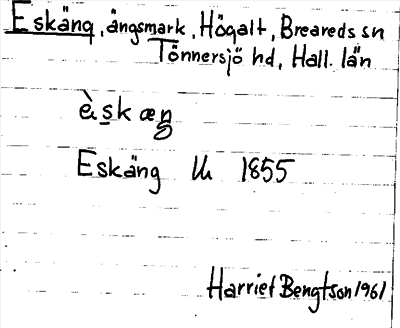 Eskäng, ängsmark, Högalt, Breareds sn
Tönnersjö hd, Hall. län
èskæŋ
Eskäng Lh 1855
Harriet Bengtson 1961